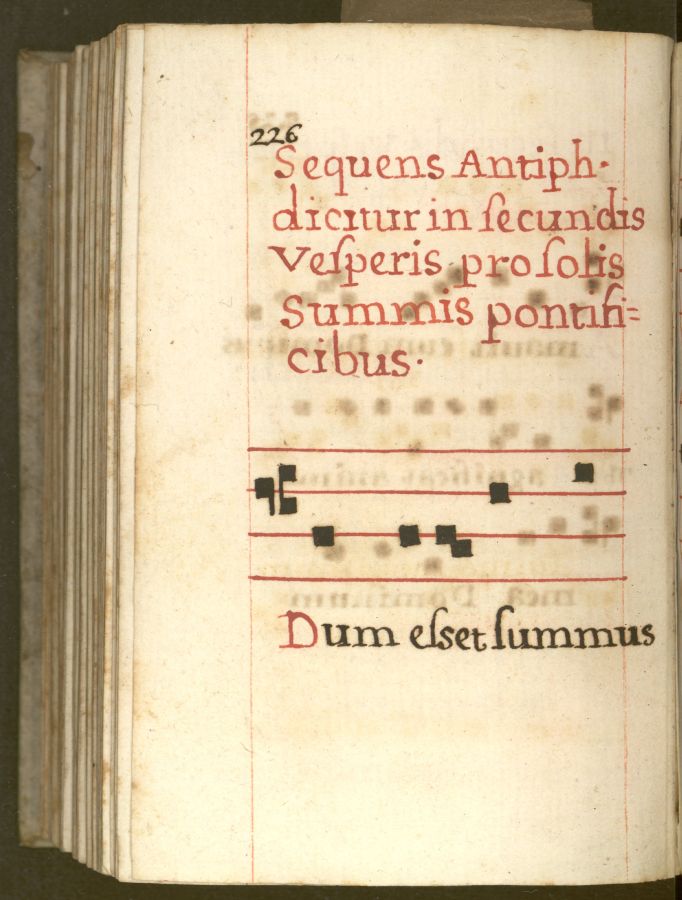 226
Sequens Antiph·
dicitur in ſecundis
Veſperis pro ſolis
Summis pontifi=
cibus·
Dum eſset ſummus